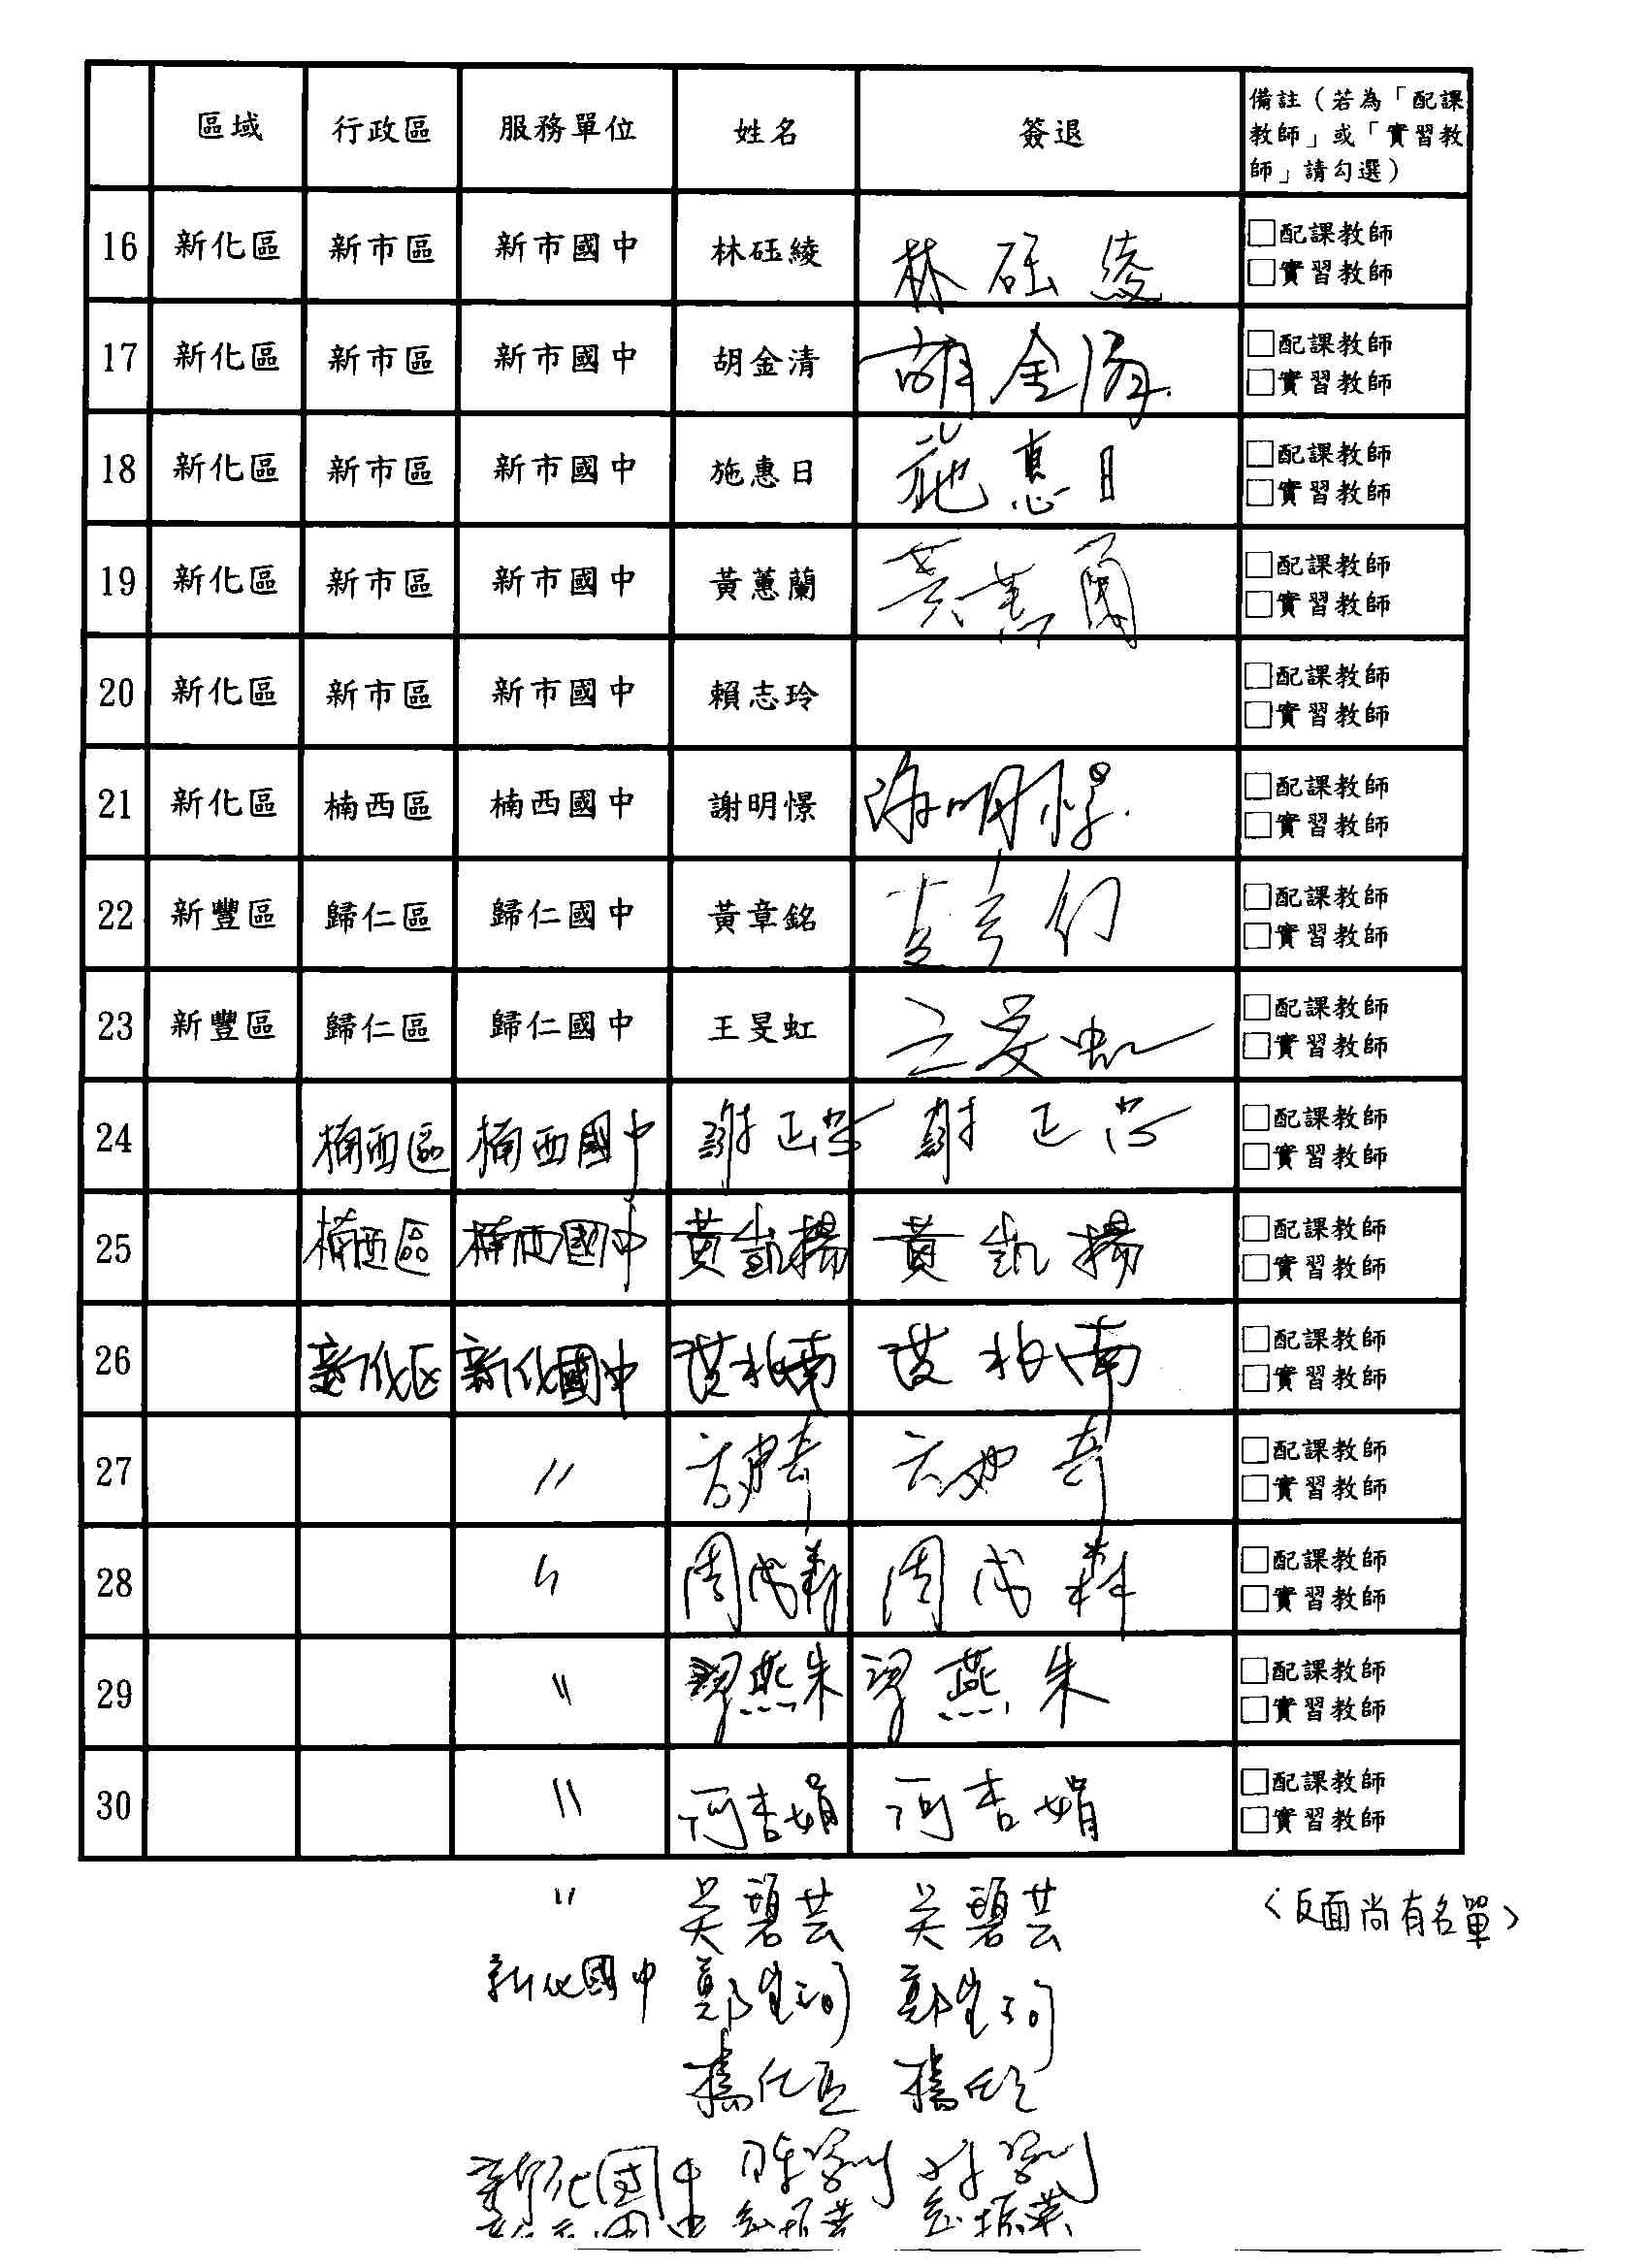 區域 行政區 服務單位 姓名 簽退 備註（若為「配課教師」或「實習教師」請勾選）
16 新化區 新市區 新市國中 林砡綾 林砡綾 □配課教師
□實習教師
17 新化區 新市區 新市國中 胡金清 胡金清 □配課教師
□實習教師
18 新化區 新市區 新市國中 施惠日 施惠日 □配課教師
□實習教師
19 新化區 新市區 新市國中 黃蕙蘭 黃蕙蘭 □配課教師
□實習教師
20 新化區 新市區 新市國中 賴志玲 □配課教師
□實習教師
21 新化區 楠西區 楠西國中 謝明憬 謝明憬 □配課教師
□實習教師
22 新豐區 歸仁區 歸仁國中 黃章銘 □配課教師
□實習教師
23 新豐區 歸仁區 歸仁國中 王旻虹 王旻虹 □配課教師
□實習教師
24 楠西區 楠西國中 □配課教師
□實習教師
25 楠西區 楠西國中 黃凱揚 黃凱揚 □配課教師
□實習教師
26 新化区 新化國中 □配課教師
□實習教師
27 〃 □配課教師
□實習教師
28 〃 周茂森 周茂森 □配課教師
□實習教師
29 〃 廖燕朱 廖燕朱 □配課教師
□實習教師
30 〃 阿杏娟 阿杏娟 □配課教師
□實習教師
〃 吳碧芸 吳碧芸 〈反面尚有名單〉
新化國中
新化國中